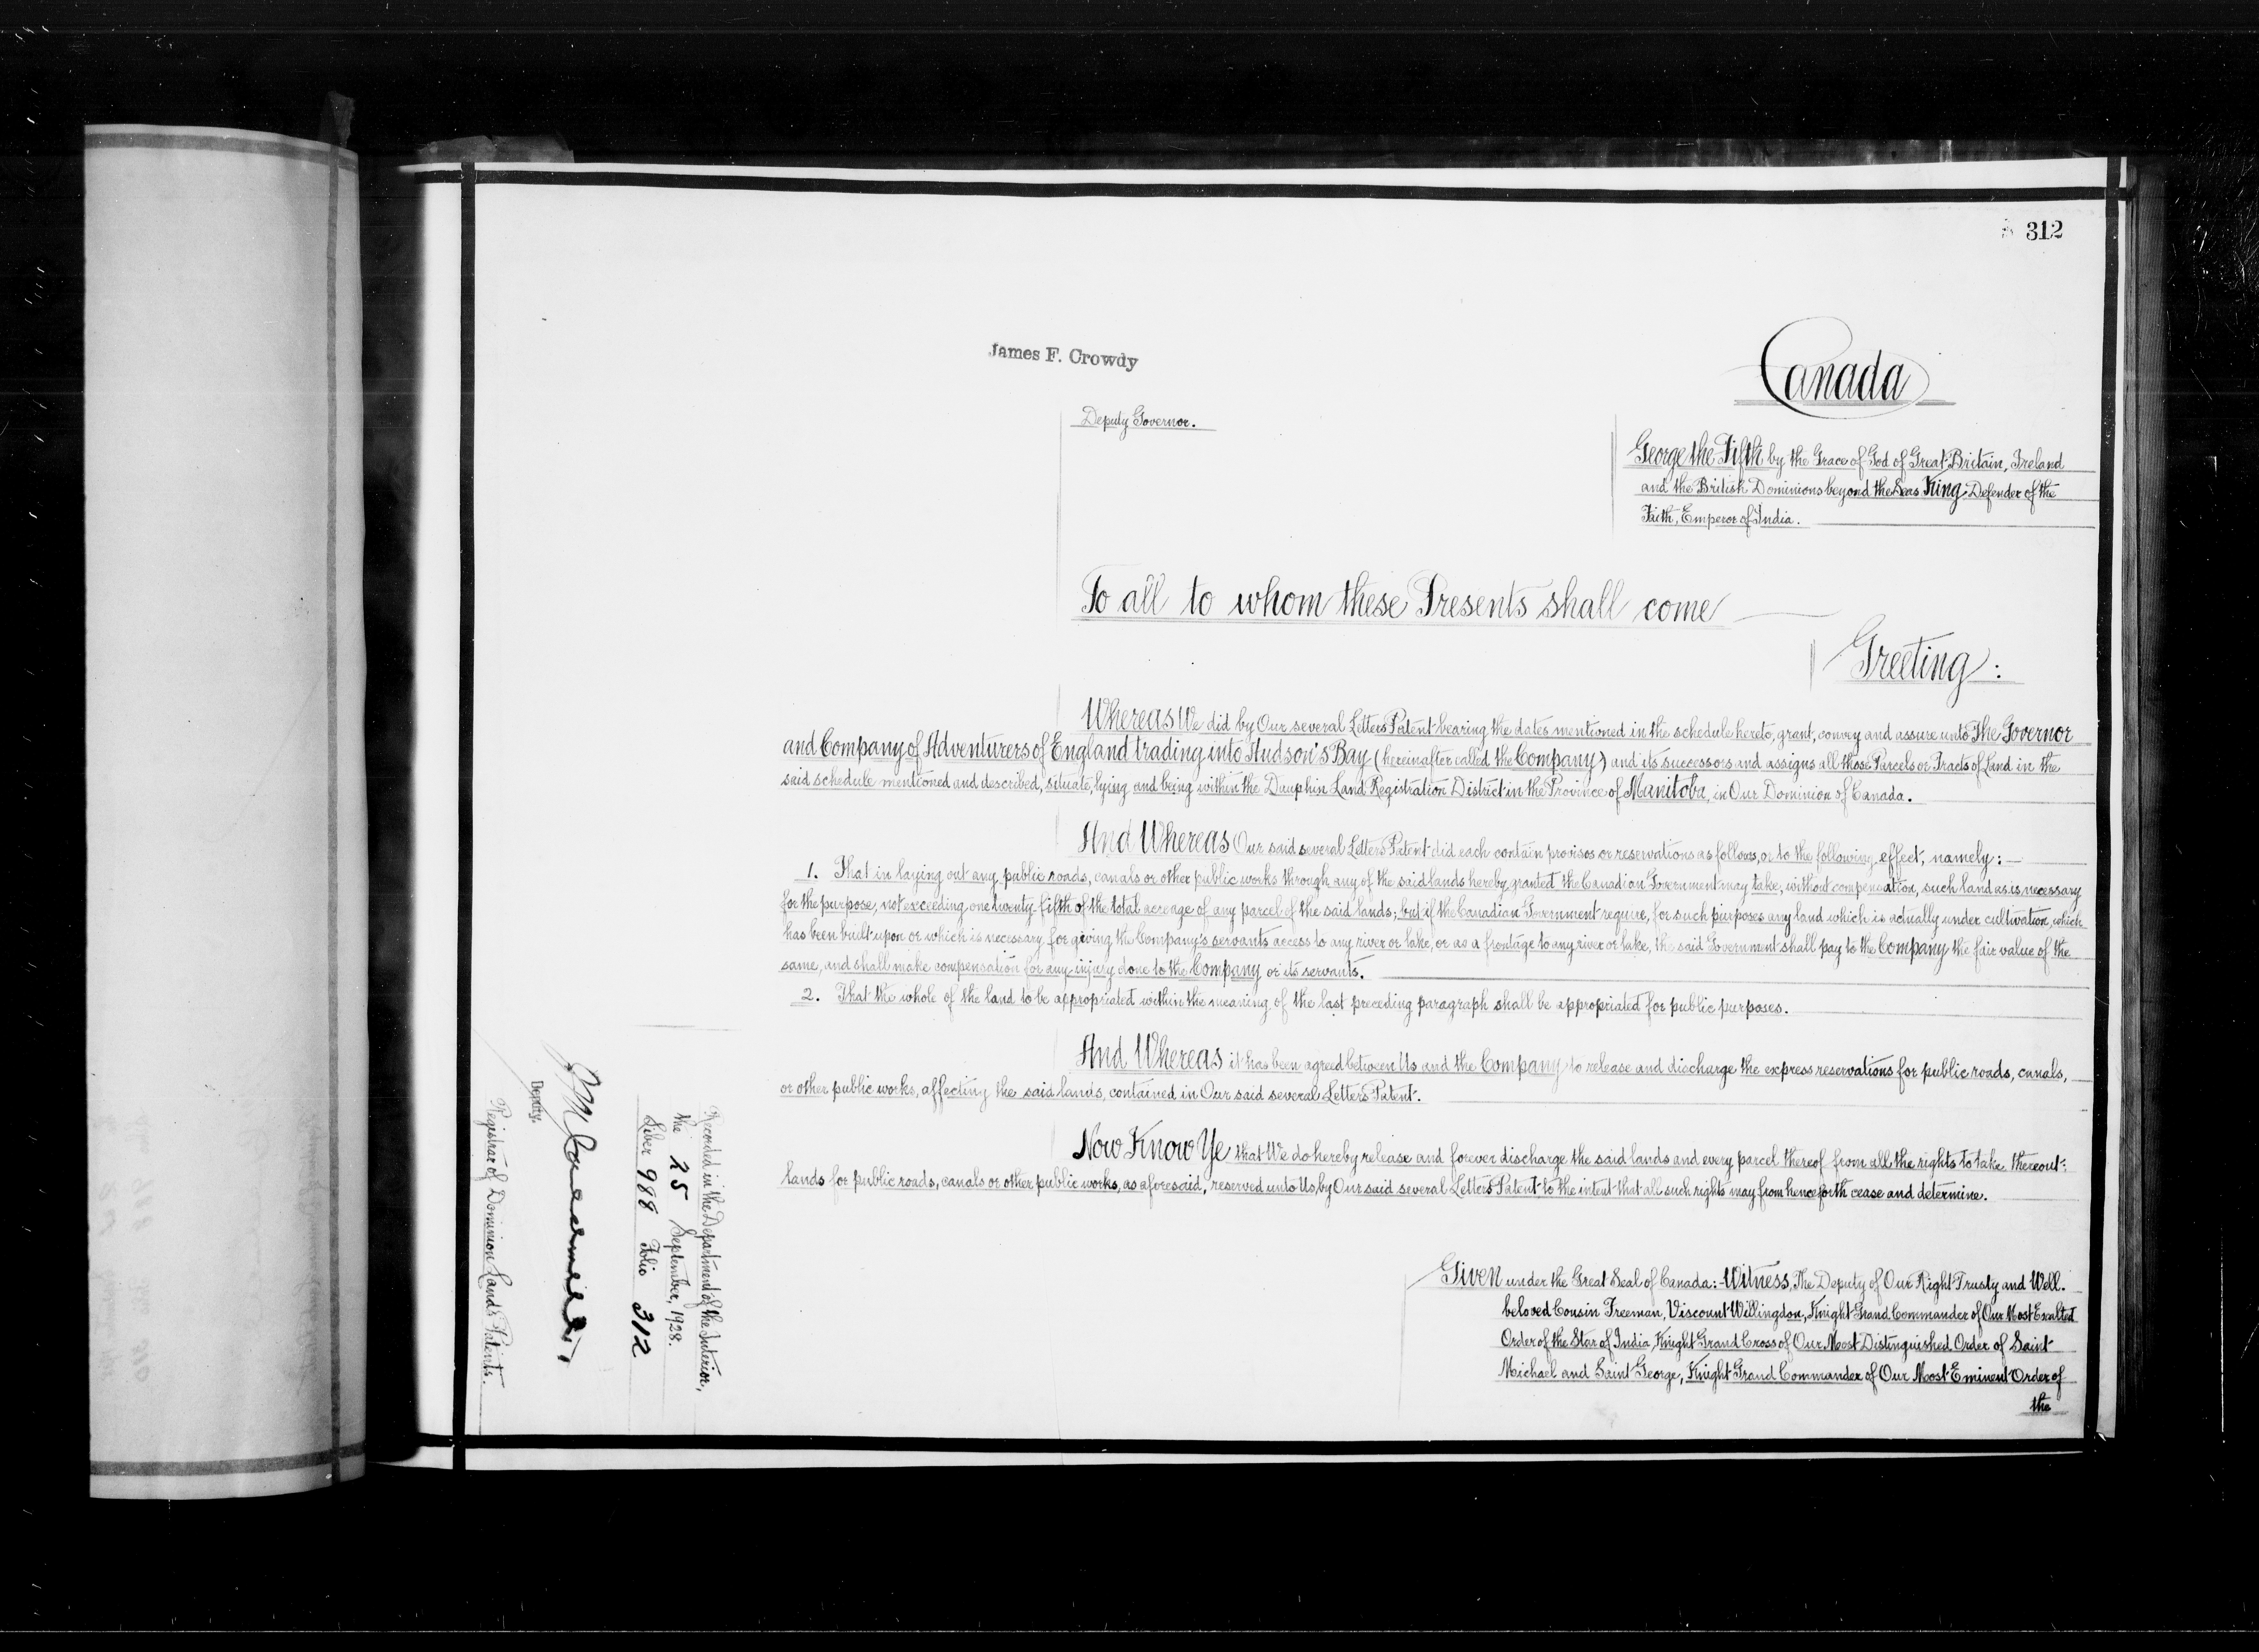 312
James F. Crowdy
Canada
Deputy Governor.
George the Fifth by the Grace of God of Great Britain, Ireland
and the British Dominions beyond the Seas King, Defender of the
Faith, Emperor of India.
To all to whom these Presents shall come
Greeting:
Whereas We did by Our several Letters Patent bearing the dates mentioned in the schedule hereto, grant, convey and assure unto The Governor
and Company of Adventurers of England trading into Hudson's Bay (hereinafter called the Company) and its successors and assigns all those Parcels or Tracts of Land in the
said schedule mentioned and described, situate, lying and being within the Dauphin Land Registration District in the Province of Manitoba, in Our Dominion of Canada.
And Whereas Our said several Letters Patent did each contain provisos or reservations as follows, or to the following effect, namely:—
1. That in laying out any public roads, canals or other public works through any of the said lands hereby granted the Canadian Government may take, without compensation, such land as is necessary
for the purpose, not exceeding one twenty-fifth of the total acreage of any parcel of the said lands; but if the Canadian Government require, for such purposes any land which is actually under cultivation, which
has been built upon or which is necessary for giving the Company's servants access to any river or lake, or as a frontage to any river or lake, the said Government shall pay to the Company the fair value of the
same, and shall make compensation for any injury done to the Company or its servants.
2. That the whole of the land to be appropriated within the meaning of the last preceding paragraph shall be appropriated for public purposes.
And Whereas it has been agreed between Us and the Company to release and discharge the express reservations for public roads, canals,
or other public works, affecting the said lands, contained in Our said several Letters Patent.
Now Know Ye that We do hereby release and forever discharge the said lands and every parcel thereof from all the rights to take thereout:
lands for public roads, canals or other public works, as aforesaid, reserved unto Us, by Our said several Letters Patent to the intent that all such rights may from henceforth cease and determine.
Given under the Great Seal of Canada:-Witness, The Deputy of Our Right Trusty and Well.
beloved Cousin Freeman, Viscount Willingdon, Knight Grand Commander of Our Most Exalted
Order of the Star of India, Knight Grand Cross of Our Most Distinguished Order of Saint
Michael and Saint George, Knight Grand Commander of Our Most Eminent Order of
the
Recorded in the Department of the Interior,
the 25 September, 1928.
Liber 988 Folio 312
Deputy.
Registrar of Dominion Lands Patents.